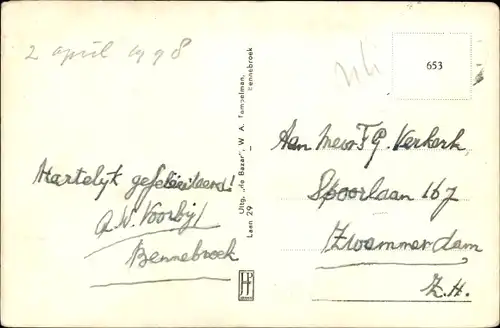 2 april 1998
653
Uitg. „de Bazar", W. A. Tempelman,
Laan 29 — Bennebroek
Aan Mevr F.G. Verkerk,
Spoorlaan 167
Zwammerdam
Z.H.
Hartelijk gefeliciteerd!
A.W. Voorbij
Bennebroek
JHP